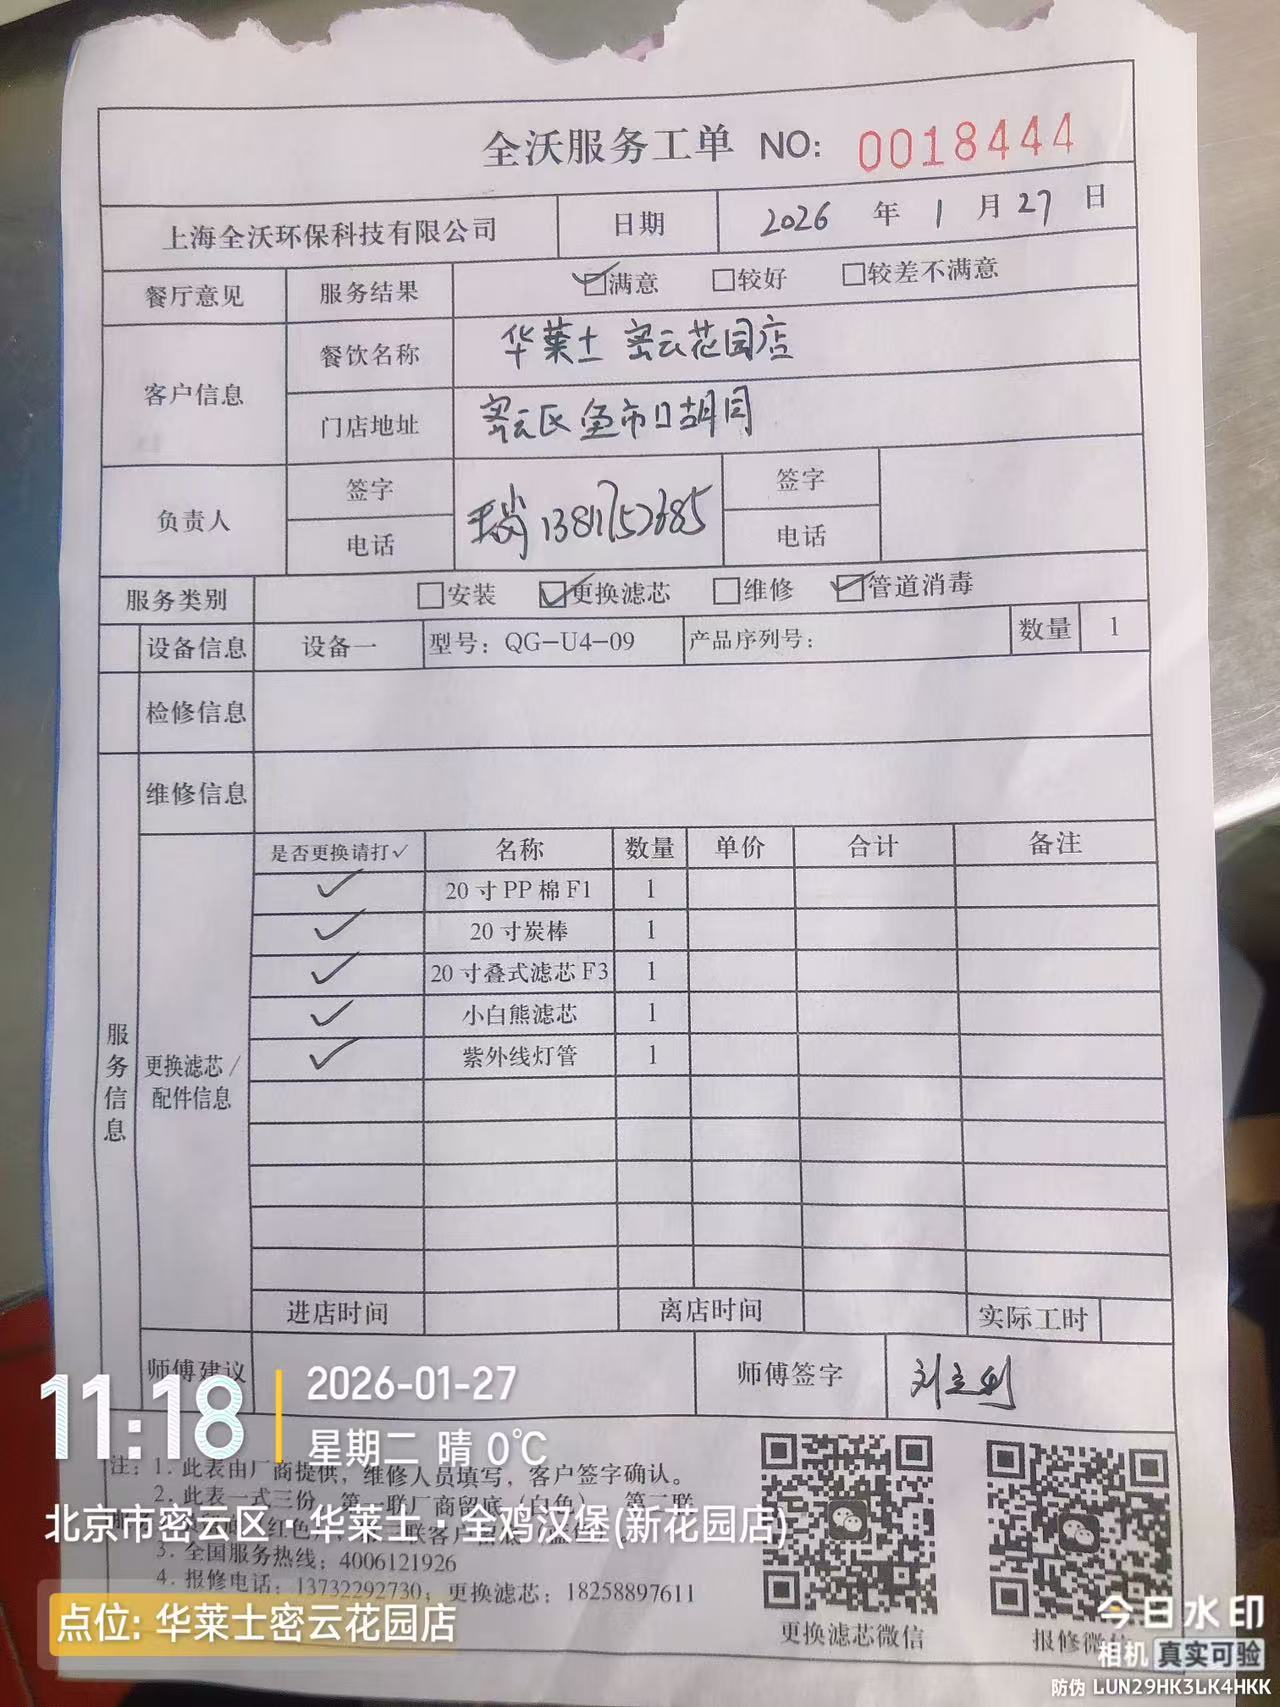 全沃服务工单 NO: 0018444
上海全沃环保科技有限公司 日期 2026 年 1 月 27 日
餐厅意见 服务结果 ☑满意 □较好 □较差不满意
客户信息 餐饮名称 华莱士 密云花园店
门店地址 密云区鱼市口胡同
负责人 签字 签字
电话 电话
服务类别 □安装 ☑更换滤芯 □维修 ☑管道消毒
设备信息 设备一 型号：QG-U4-09 产品序列号： 数量 1
检修信息
维修信息
服务信息
更换滤芯/配件信息
是否更换请打✓ 名称 数量 单价 合计 备注
✓ 20寸PP棉F1 1
✓ 20寸炭棒 1
✓ 20寸叠式滤芯F3 1
✓ 小白熊滤芯 1
✓ 紫外线灯管 1
进店时间 离店时间 实际工时
师傅建议 师傅签字
11:18 2026-01-27
星期二 晴 0℃
注：1. 此表由厂商提供，维修人员填写，客户签字确认。
2. 此表一式三份，第一联厂商留底（白色），第二联
北京市密云区·华莱士·全鸡汉堡(新花园店)
3. 全国服务热线：4006121926
4. 报修电话：13732292730；更换滤芯：18258897611
点位: 华莱士密云花园店
更换滤芯微信 报修微信
今日水印
相机 真实可验
防伪 LUN29HK3LK4HKK